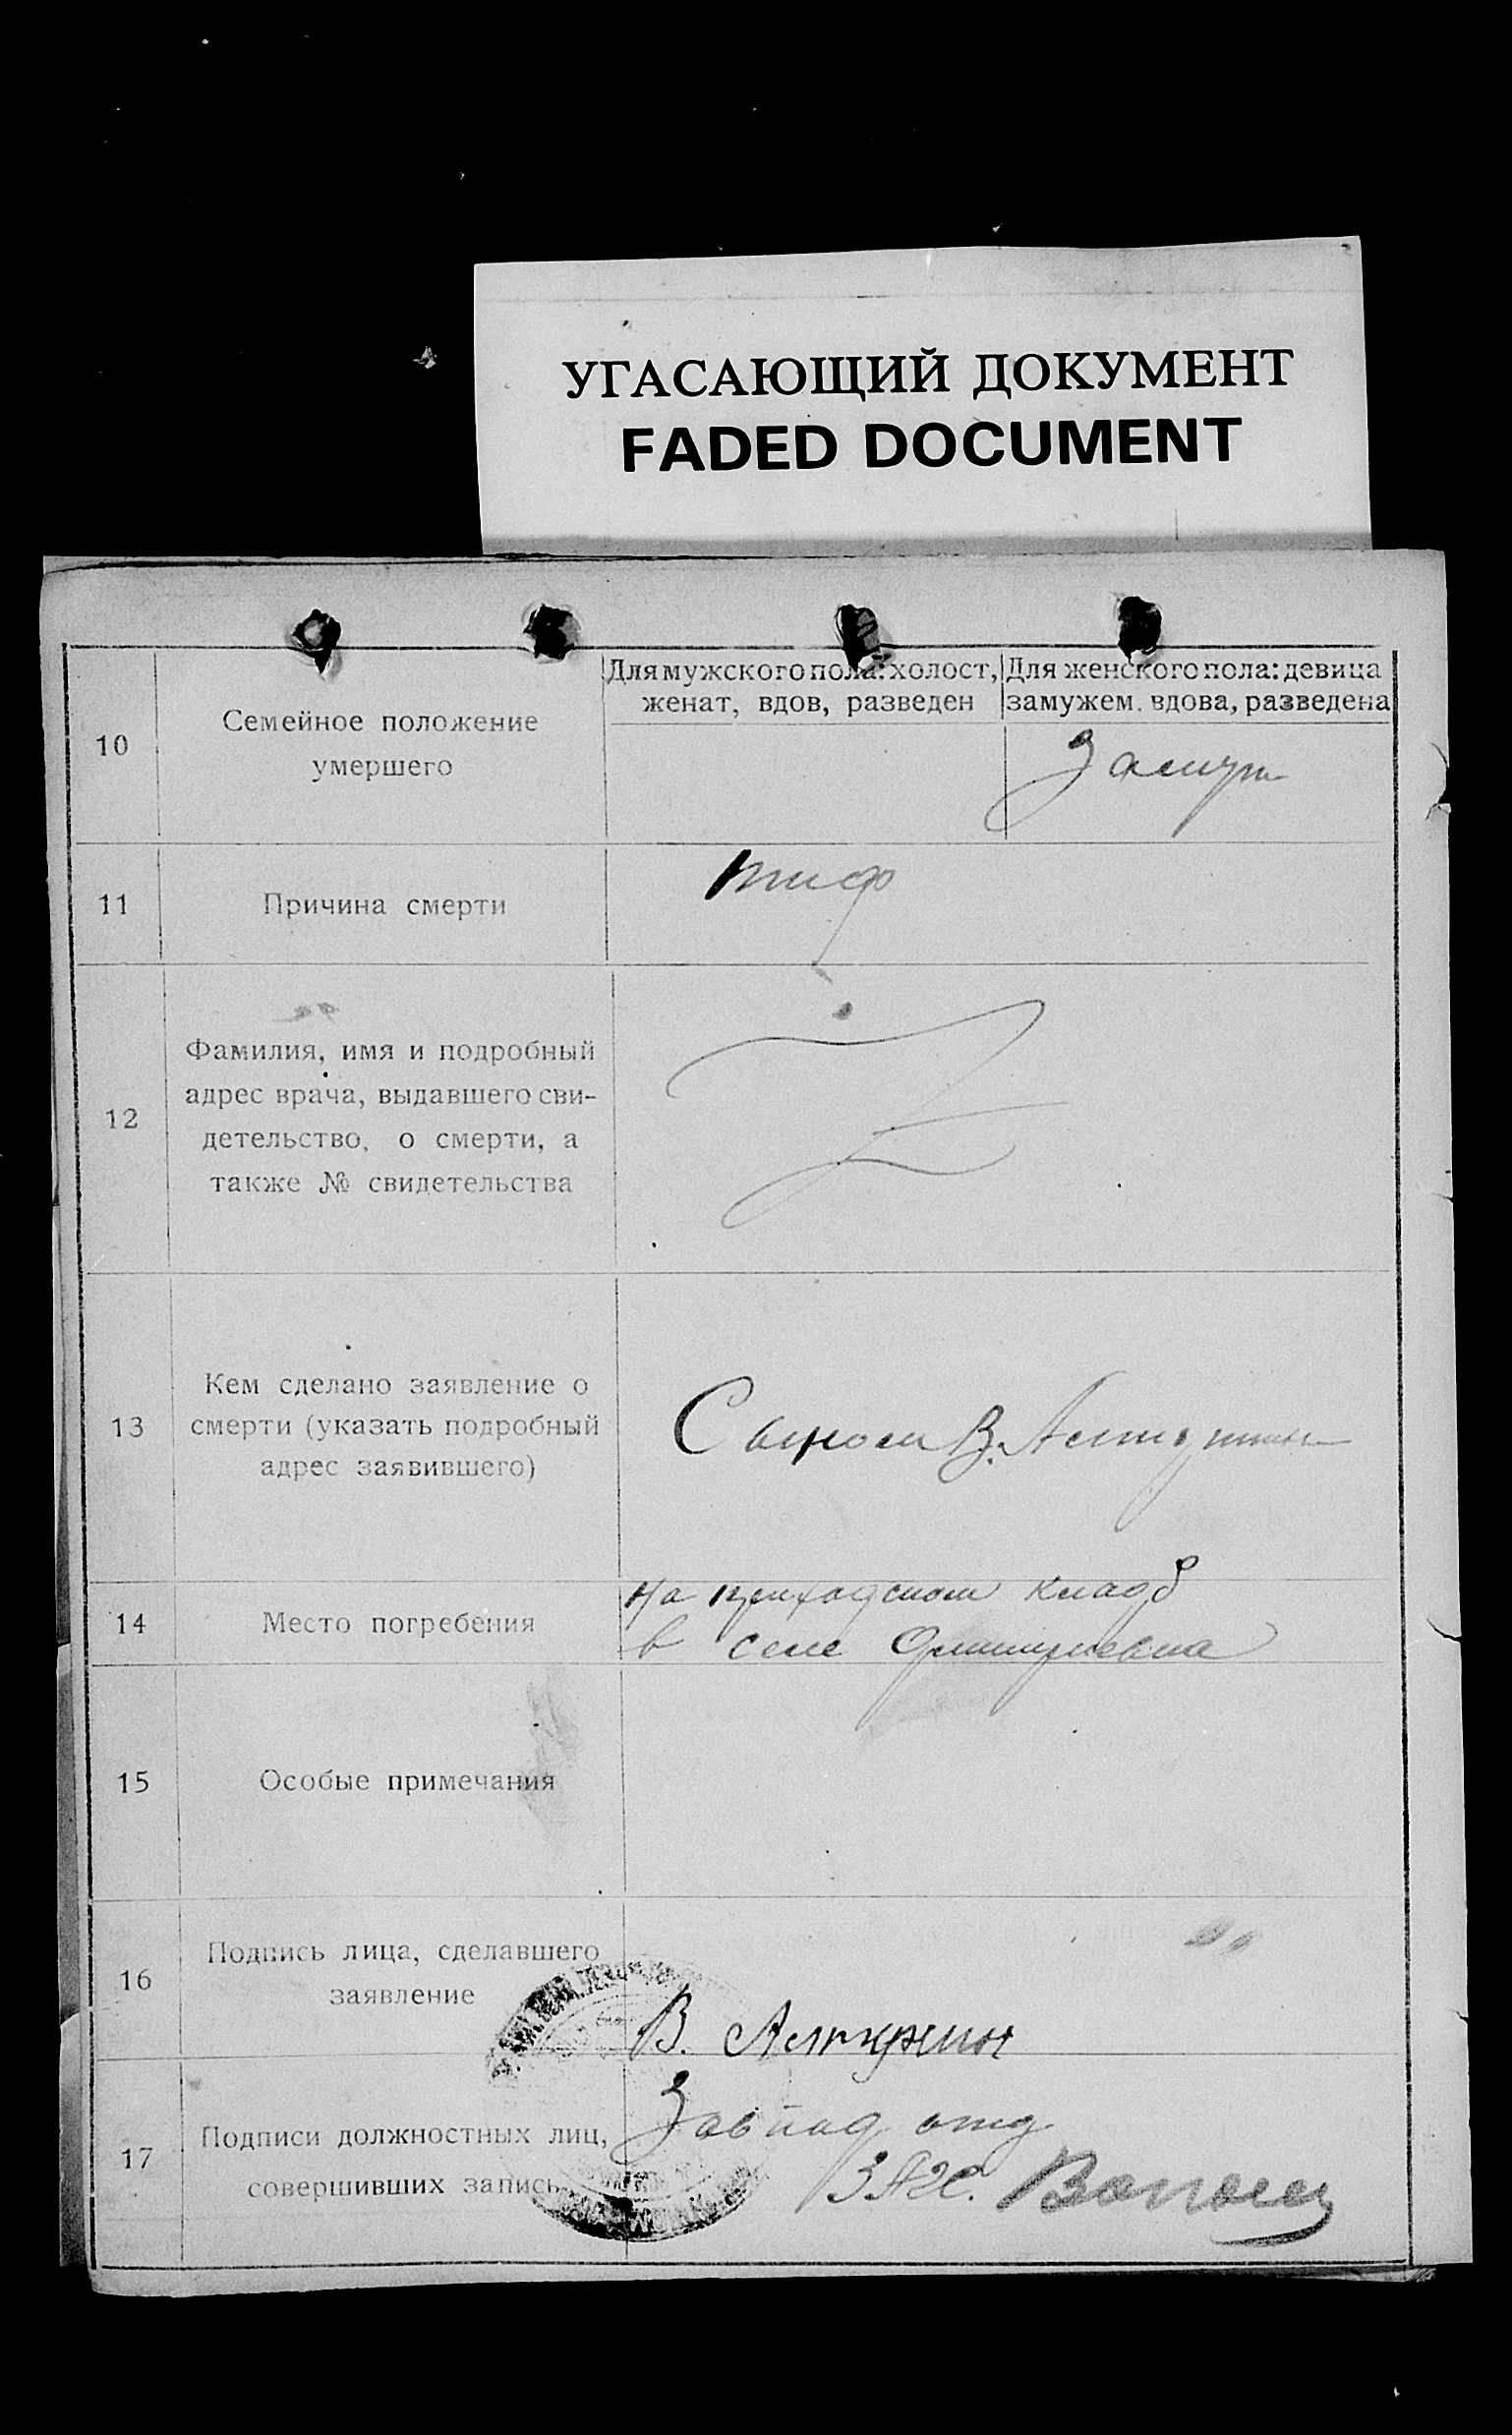 УГАСАЮЩИЙ ДОКУМЕНТ
FADED DOCUMENT
10
Семейное положение
умершего
Для мужского пола: холост,
женат, вдов, разведен
Для женского пола: девица
замужем. вдова, разведена
Замуж
11
Причина смерти
тиф
12
Фамилия, имя и подробный
адрес врача, выдавшего сви-
детельство, о смерти, а
также № свидетельства
13
Кем сделано заявление о
смерти (указать подробный
адрес заявившего)
Сыном В.
14
Место погребения
на приходском кладб
в селе
15
Особые примечания
16
Подпись лица, сделавшего
заявление
В.
17
Подписи должностных лиц,
совершивших запись
Зав под отд
ЗАГС.